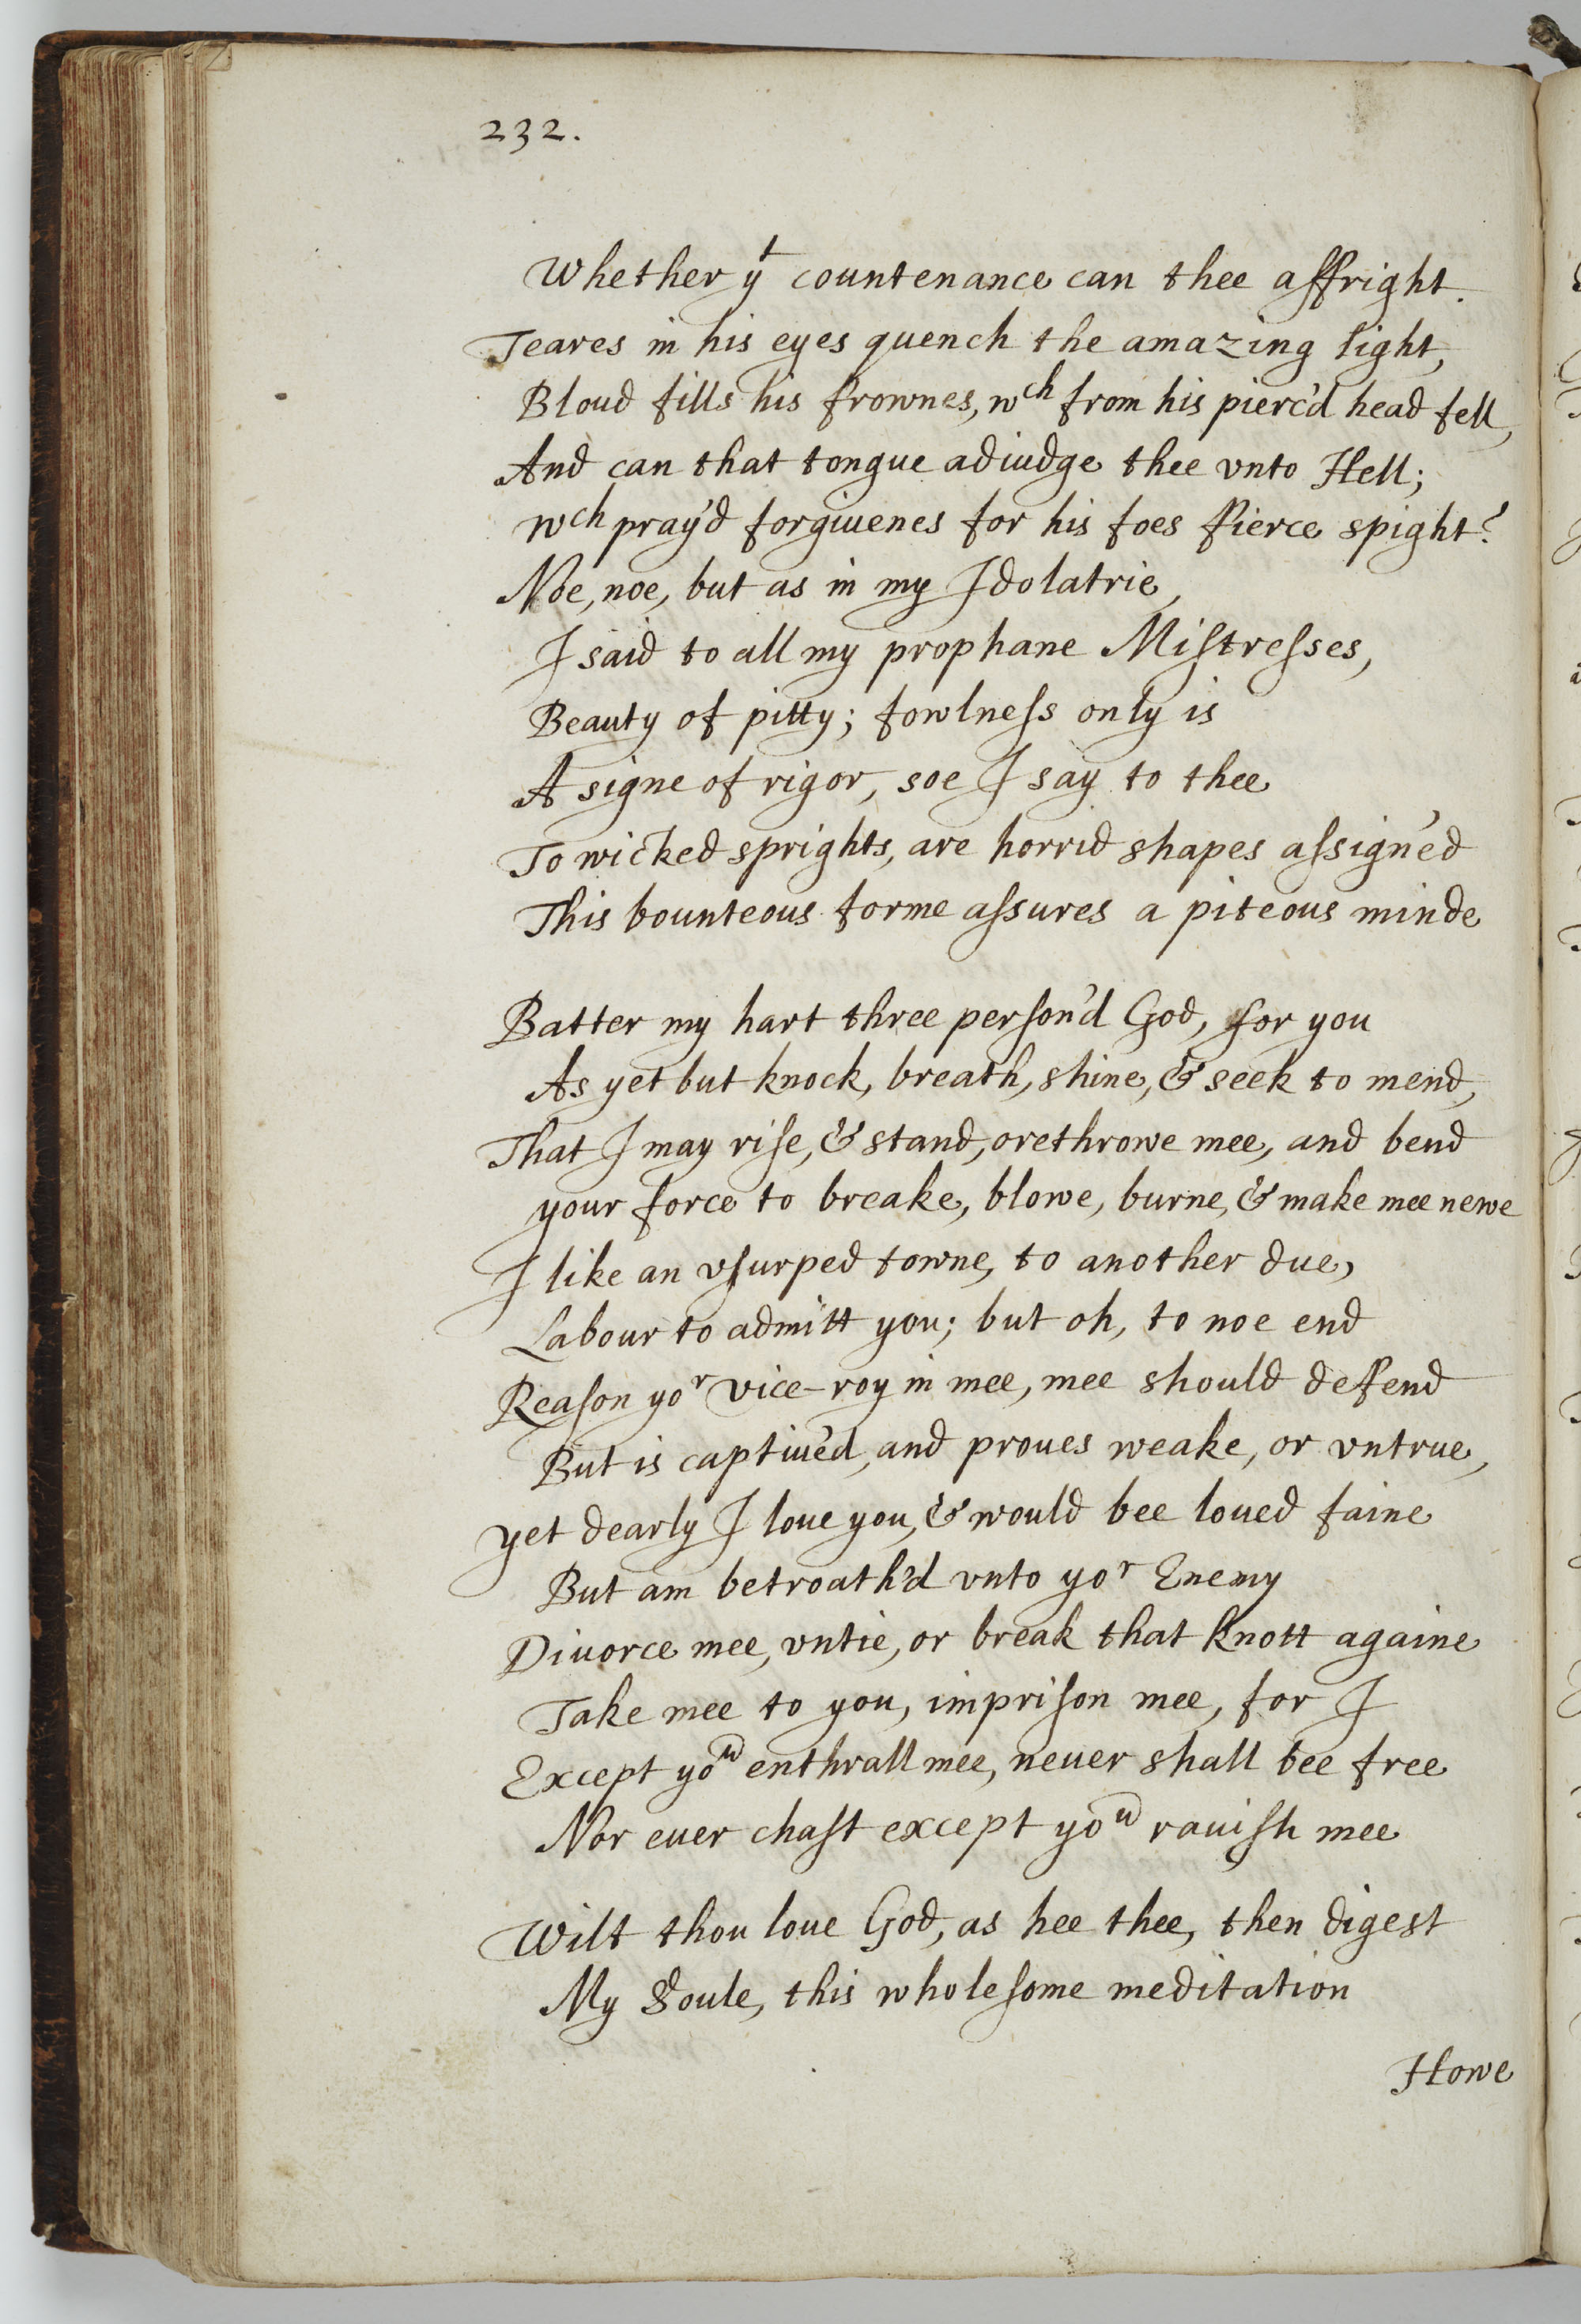 232.
Whether yt countenance can thee affright.
Teares in his eyes quench the amazing light,
Bloud fills his frownes, wch from his pierc'd head fell,
And can that tongue adiudge thee vnto Hell;
wch pray'd forgiuenes for his foes fierce spight?
Noe, noe, but as in my Idolatrie,
I said to all my prophane Miſtreſses,
Beauty of pitty; fowlneſs only is
A signe of rigor, soe I say to thee
To wicked sprights, are horrid shapes aſsign'ed
This bounteous forme aſsures a piteous minde
Batter my hart three perſon'd God, for you
As yet but knock, breath, shine, & seek to mend,
That I may riſe, & stand, orethrowe mee, and bend
your force to breake, blowe, burne, & make mee newe
I like an vſurped towne, to another due,
Labour to admitt you; but oh, to noe end
Reaſon yor vice-roy in mee, mee should defend
But is captiu'ed, and proues weake, or vntrue,
yet dearly I loue you, & would bee loued faine
But am betroath'd vnto yor Enemy
Diuorce mee, vntie, or break that knott againe
Take mee to you, impriſon mee, for I
Except you enthrall mee, neuer shall bee free
Nor euer chaſt except you rauiſh mee
Wilt thou loue God, as hee thee, then digest
My Soule, this wholeſome meditation
Howe